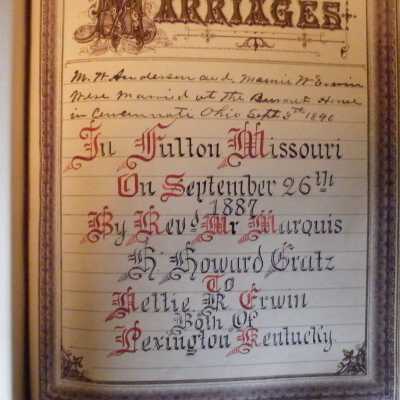 MARRIAGES
M. W. Anderson and Mamie W Erwin
Were Married at the Burnet House
in Cincinnati Ohio Sept 3rd 1890
In Fulton Missouri
On September 26th
1887
By Revd Mr Marquis
H Howard Gratz
To
Nellie R Erwin
Both Of
Lexington Kentucky